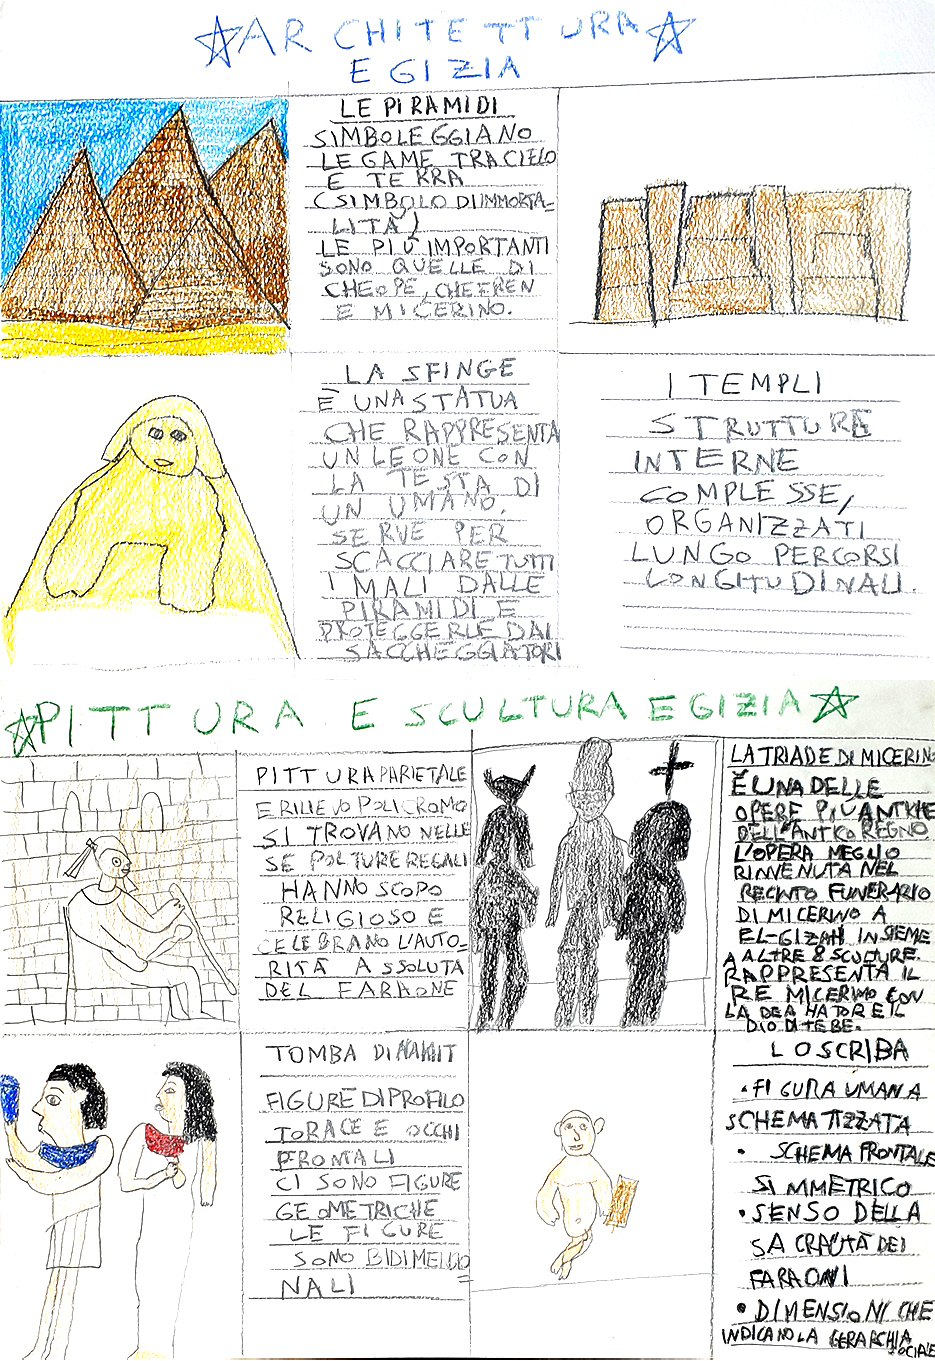 ARCHITETTURA
EGIZIA
LE PIRAMIDI
SIMBOLEGGIANO
LEGAME TRA CIELO
E TERRA
(SIMBOLO DI IMMORTA=
LITÀ)
LE PIÙ IMPORTANTI
SONO QUELLE DI
CHEOPE, CHEFREN
E MICERINO.
LA SFINGE
È UNA STATUA
CHE RAPPRESENTA
UN LEONE CON
LA TESTA DI
UN UMANO.
SERVE PER
SCACCIARE TUTTI
I MALI DALLE
PIRAMIDI E
PROTEGGERLE DAI
SACCHEGGIATORI
I TEMPLI
STRUTTURE
INTERNE
COMPLESSE,
ORGANIZZATI
LUNGO PERCORSI
LONGITUDINALI.
PITTURA E SCULTURA EGIZIA
PITTURA PARIETALE
E RILIEVO POLICROMO
SI TROVANO NELLE
SEPOLTURE REGALI
HANNO SCOPO
RELIGIOSO E
CELEBRANO L'AUTO-
RITÀ ASSOLUTA
DEL FARAONE
LA TRIADE DI MICERINO
È UNA DELLE
OPERE PIÙ ANTICHE
DELL'ANTICO REGNO
L'OPERA MEGLIO
RINVENUTA NEL
RECINTO FUNERARIO
DI MICERINO A
EL-GIZAH INSIEME
A ALTRE 8 SCULTURE.
RAPPRESENTA IL
RE MICERINO CON
LA DEA HATOR E IL
DIO DI TEBE.
TOMBA DI NAKHT
FIGURE DI PROFILO
TORACE E OCCHI
FRONTALI
CI SONO FIGURE
GEOMETRICHE
LE FIGURE
SONO BIDIMENSIO
NALI
LO SCRIBA
• FIGURA UMANA
SCHEMATIZZATA
• SCHEMA FRONTALE
SIMMETRICO
• SENSO DELLA
SACRALITÀ DEI
FARAONI
• DIMENSIONI CHE
INDICANO LA GERARCHIA
SOCIALE